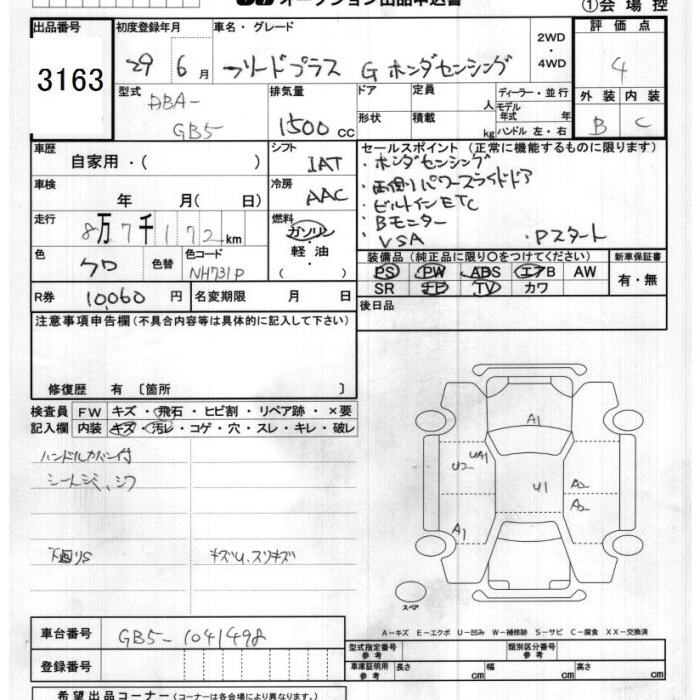 オークション出品申込書
①会場控
出品番号 3163
初度登録年月 29 6月
車名・グレード フリードプラス G ホンダセンシング
2WD・4WD
評価点 4
外装 B 内装 C
型式 DBA-GB5
排気量 1500cc
ドア
形状
定員 人
積載 kg
ディーラー・並行
モデル年式 年
ハンドル 左・右
車歴 自家用・( )
シフト IAT
車検 年 月( 日)
冷房 AAC
走行 8万7千172km
燃料 ガソリン・軽油・( )
色 クロ 色替 色コード NH731P
R券 10,060円 名変期限 月 日
セールスポイント (正常に機能するものに限ります)
・ホンダセンシング
・両側パワースライドドア
・ビルトインETC
・Bモニター
・VSA ・Pスタート
装備品(純正品に限り○をつけてください)
PS PW ABS エアB AW
SR ナビ TV カワ
新車保証書 有・無
後日品
注意事項申告欄(不具合内容等は具体的に記入して下さい)
修復歴 有 [箇所 ]
検査員記入欄
FW キズ・飛石・ヒビ割・リペア跡・×要
内装 キズ・汚レ・コゲ・穴・スレ・キレ・破レ
ハンドルカバー付
シートシミ、シワ
下廻りS キズU、スリキズ
A1
UA1
U2
U1
A2
A2
A1
スペア
A-キズ E-エクボ U-凹み W-補修跡 S-サビ C-腐食 XX-交換済
車台番号 GB5-1041498
登録番号
型式指定番号 参考
類別区分番号 参考
車庫証明用 参考 長さ cm 幅 cm 高さ cm
希望出品コーナー(コーナーは各会場により異なります。)